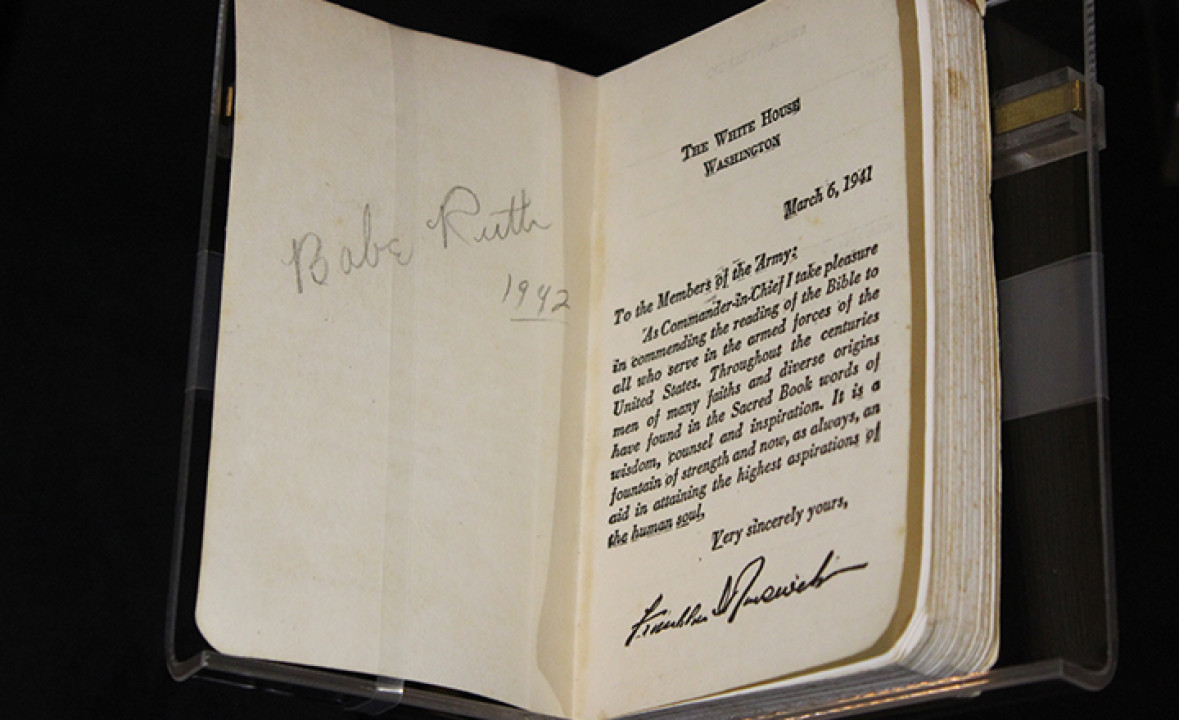 Babe Ruth
1942
THE WHITE HOUSE
WASHINGTON
March 6, 1941
To the Members of the Army:
As Commander-in-Chief I take pleasure
in commending the reading of the Bible to
all who serve in the armed forces of the
United States. Throughout the centuries
men of many faiths and diverse origins
have found in the Sacred Book words of
wisdom, counsel and inspiration. It is a
fountain of strength and now, as always, an
aid in attaining the highest aspirations of
the human soul.
Very sincerely yours,
Franklin D Roosevelt